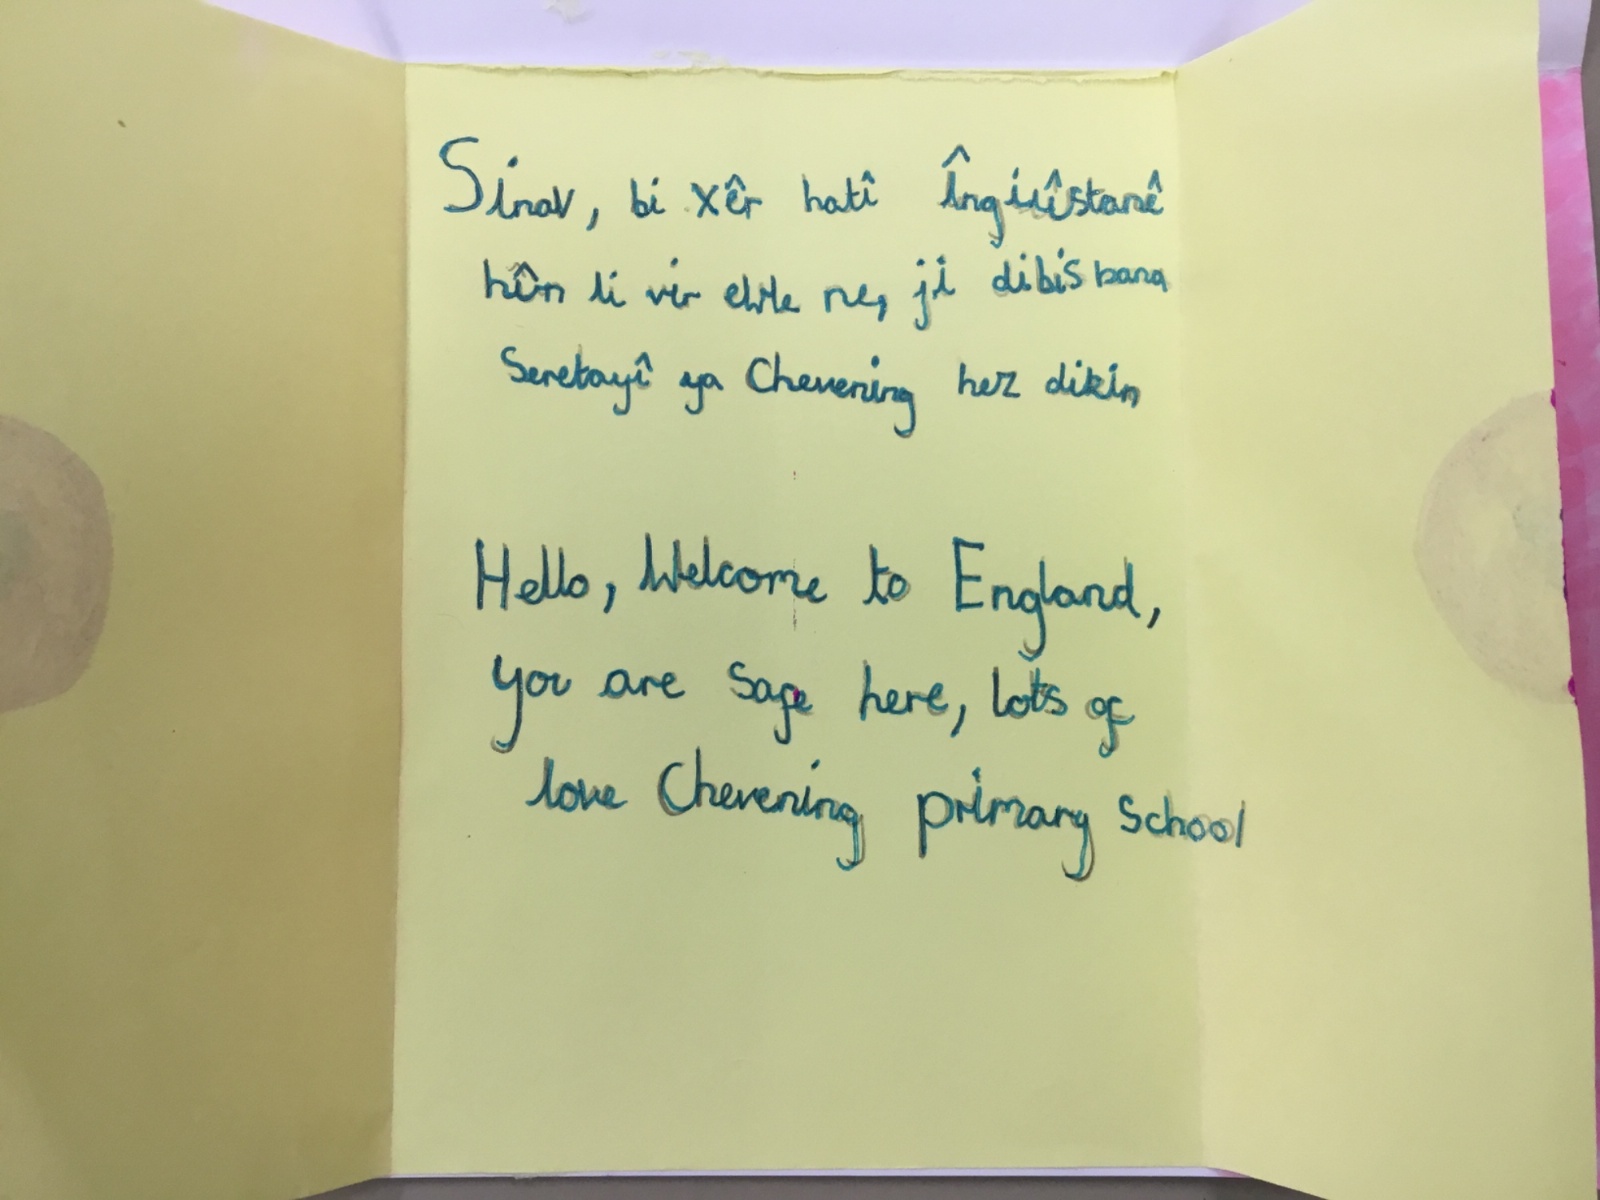 Sinav, bi xêr hatî Îngilîstanê
hûn li vir ewle ne, ji dibistana
Seretayî ya Chevening hez dikin
Hello, Welcome to England,
you are safe here, lots of
love Chevening primary School